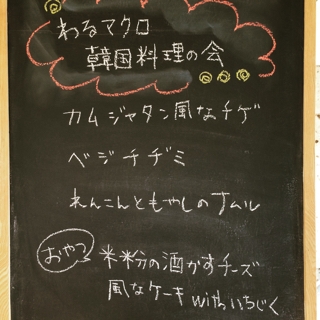 わるマクロ
韓国料理の会
カムジャタン風なチゲ
ベジチヂミ
れんこんともやしのナムル
おやつ 米粉の酒かすチーズ
風なケーキ withいちじく